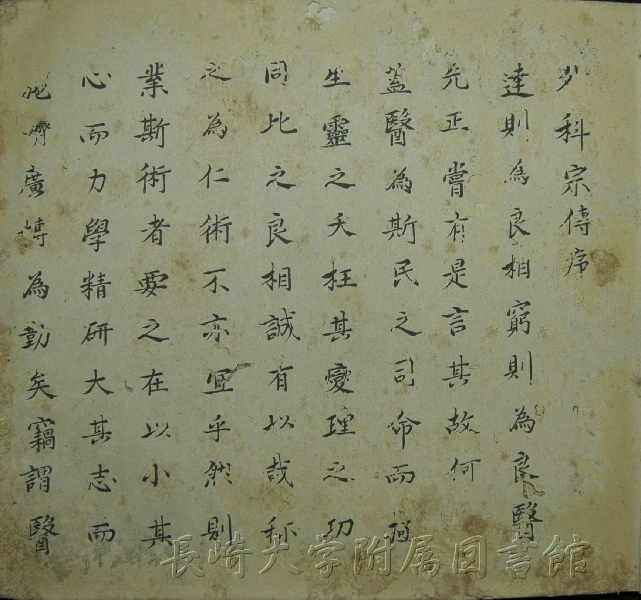 少科宗傳序
達則為良相窮則為良醫
先正嘗有是言其故何
蓋醫為斯民之司命而
生靈之夭枉其變理之功
同比之良相誠有以哉称
之為仁術不亦宜乎然則
業斯術者要之在以小其
心而力學精研大其志而
廣博為勤矣竊謂醫
長崎大学附属図書館